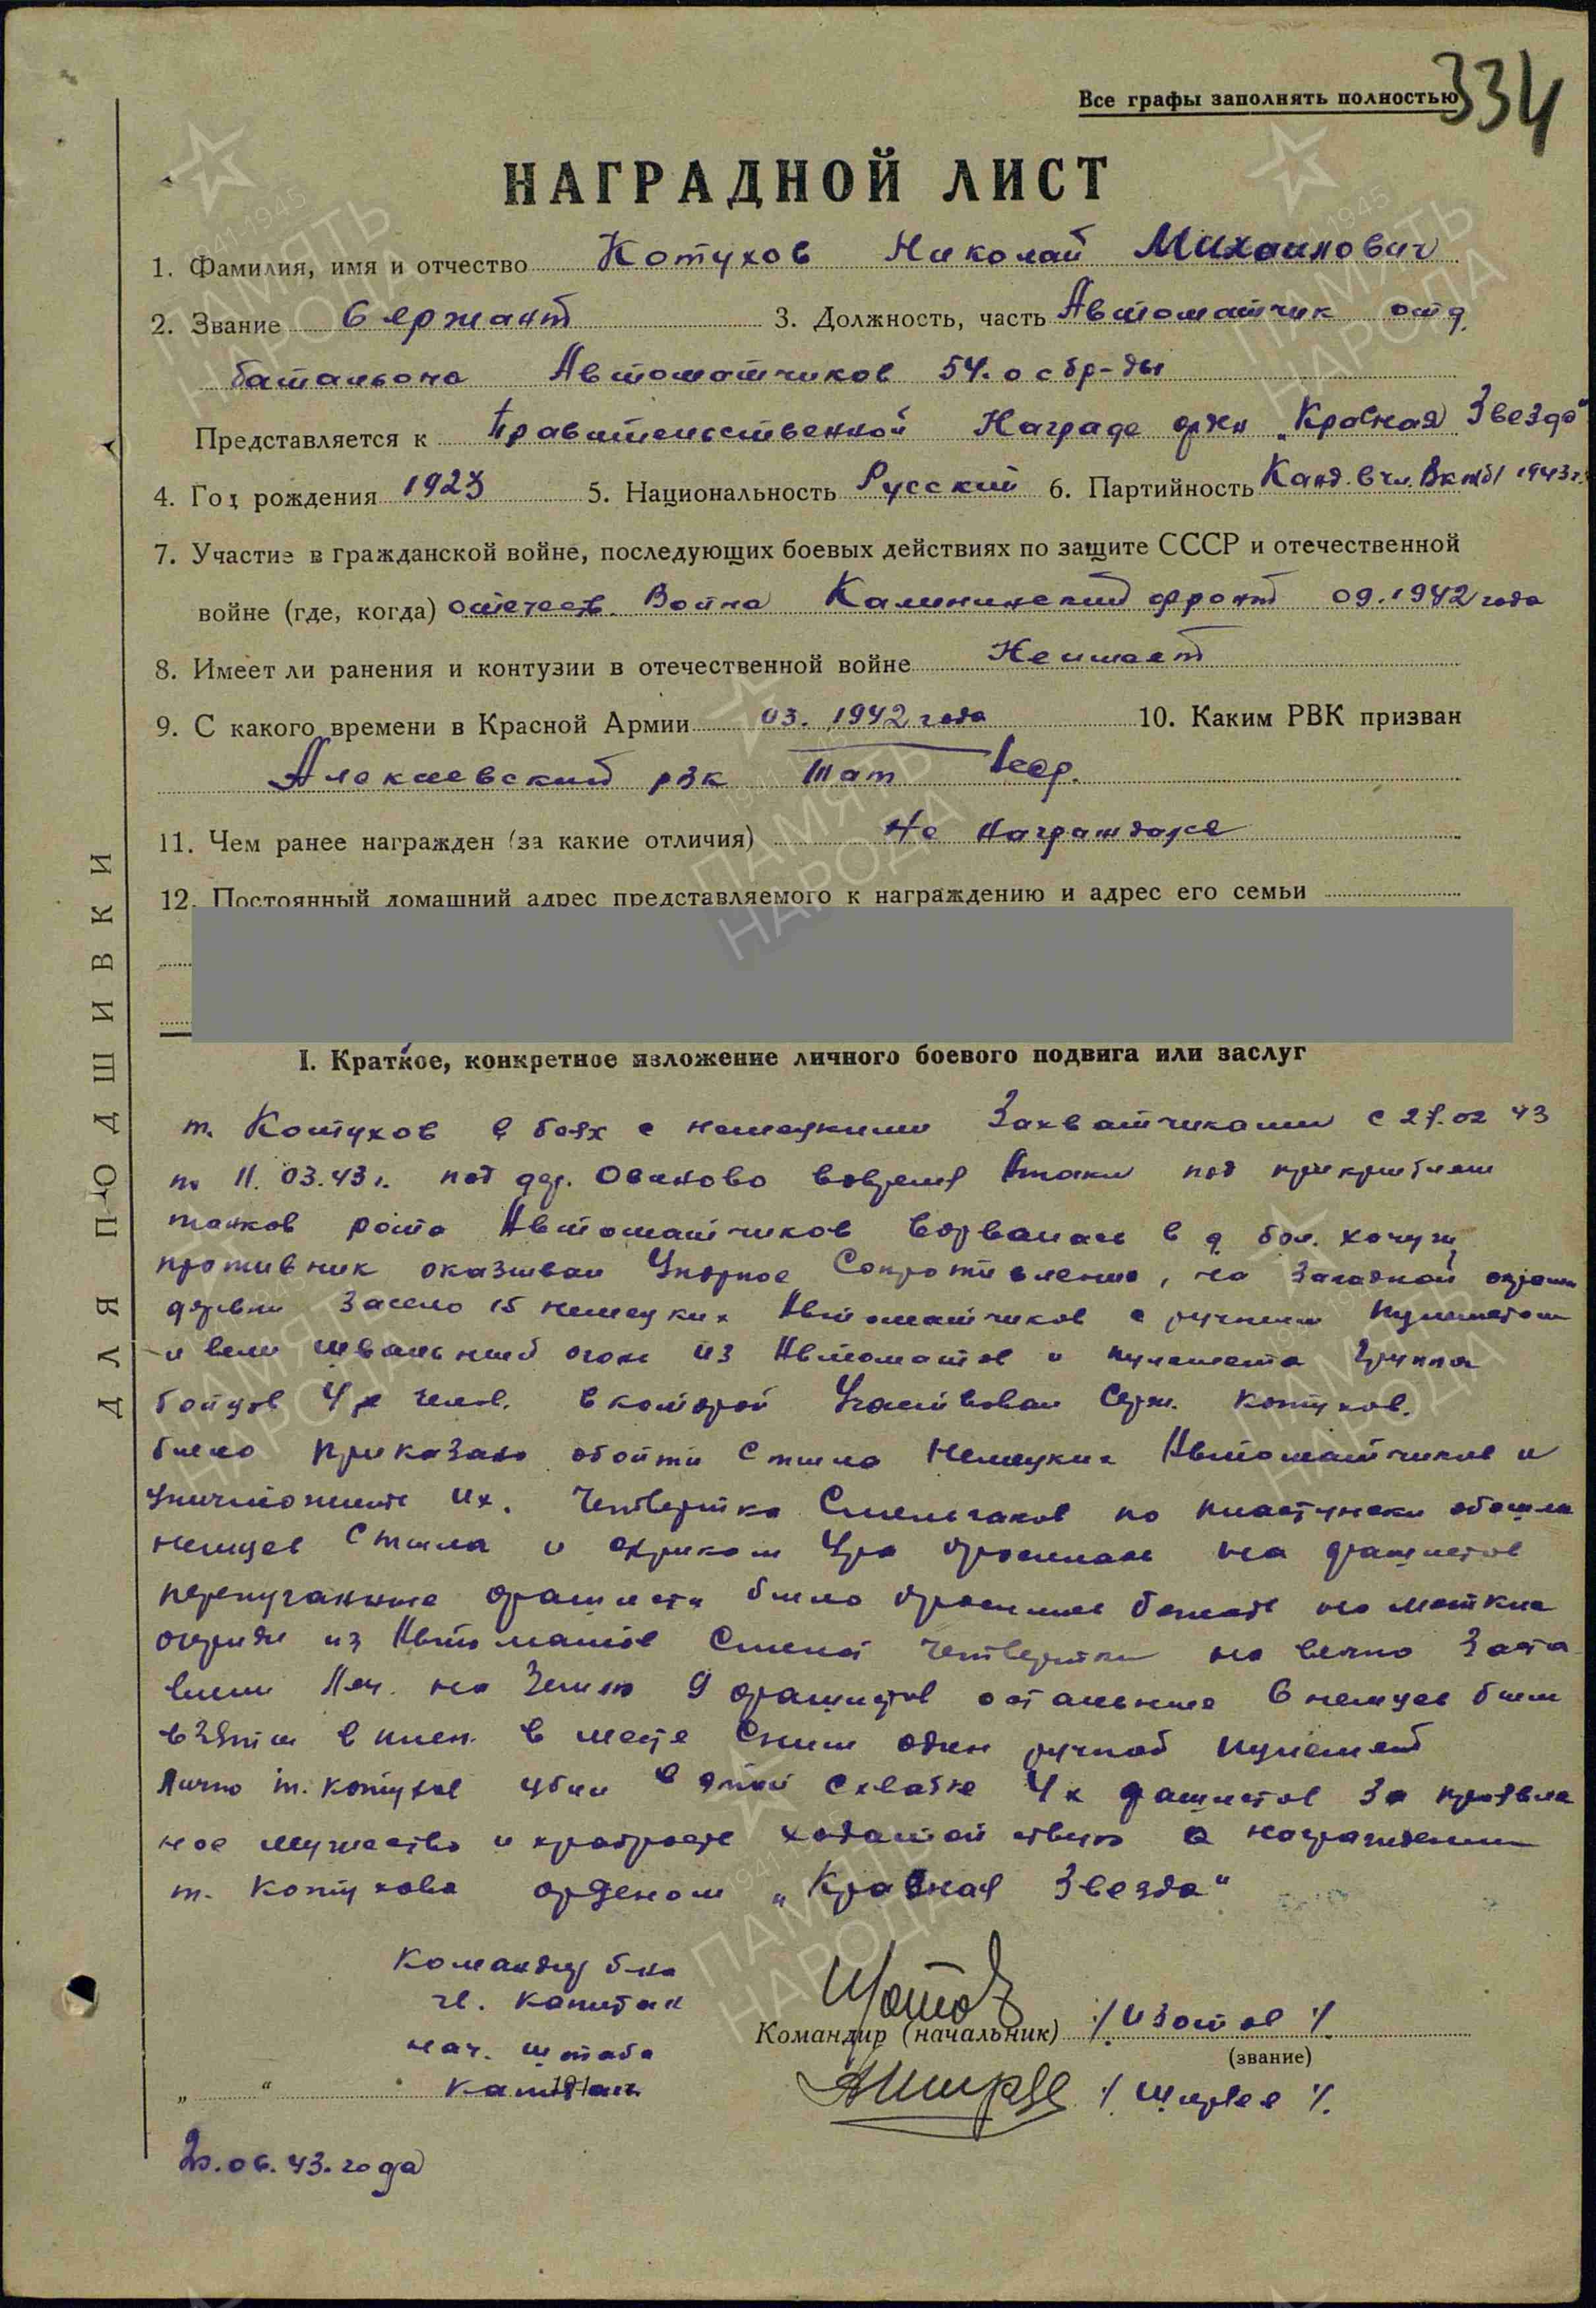 Все графы заполнять полностью
334
НАГРАДНОЙ ЛИСТ
1. Фамилия, имя и отчество Котухов Николай Михаилович
2. Звание Сержант 3. Должность, часть Автоматчик отд.
батальона Автоматчиков 54. осбр-ды
Представляется к Правительственной Награде орден „Красная Звезда"
4. Год рождения 1923 5. Национальность Русский 6. Партийность Канд. в чл. Вкп(б) 1943 г.
7. Участие в гражданской войне, последующих боевых действиях по защите СССР и отечественной
войне (где, когда) отечеств. Война Калининский фронт 09.1942 года
8. Имеет ли ранения и контузии в отечественной войне Неимеет
9. С какого времени в Красной Армии 03.1942 года 10. Каким РВК призван
Алексеевский рвк Тат
11. Чем ранее награжден (за какие отличия) Не Награждался
12. Постоянный домашний адрес представляемого к награждению и адрес его семьи
I. Краткое, конкретное изложение личного боевого подвига или заслуг
т. Котухов в боях с немецкими Захватчиками с 27.02 43
по 11.03.43 г. под дер. вовремя Атаки под прикрытием
танков рота Автоматчиков ворвалась в д бол.
противник оказывал Упорное Сопротивление, на Западной
деревни Засело 15 немецких Автоматчиков с ручным Пулеметом
и вели огонь из Автоматов и пулемета Группа
бойцов 4х челов. в которой Участвовал Серж. Котухов.
было приказано обойти Стыла Немецких Автоматчиков и
уничтожить их. Четверка Смельчаков по пластунски обошла
немцев Стыла и скриком Ура бросилась на фашистов
перепуганные фашисты было бросились бежать но меткие
очереди из Автоматов Смелой четверки на вечно Заста
вили Леч. на Землю 9 фашистов остальные 6 немцев были
взяты в плен. в месте Сними один ручной пулемет
Лично т. Котухов убил в этой Схватке 4х фашистов За проявле
ное мужество и храбрость ходатайствую о награждении
т. Котухова орденом „Красная Звезда"
Командир б-на
гв. Капитан
Командир (начальник) / Изотов /
(звание)
нач. штаба
„ " Капитан / Ширяев /
20.06.43. года
ДЛЯ ПОДШИВКИ
ПАМЯТЬ НАРОДА
1941-1945